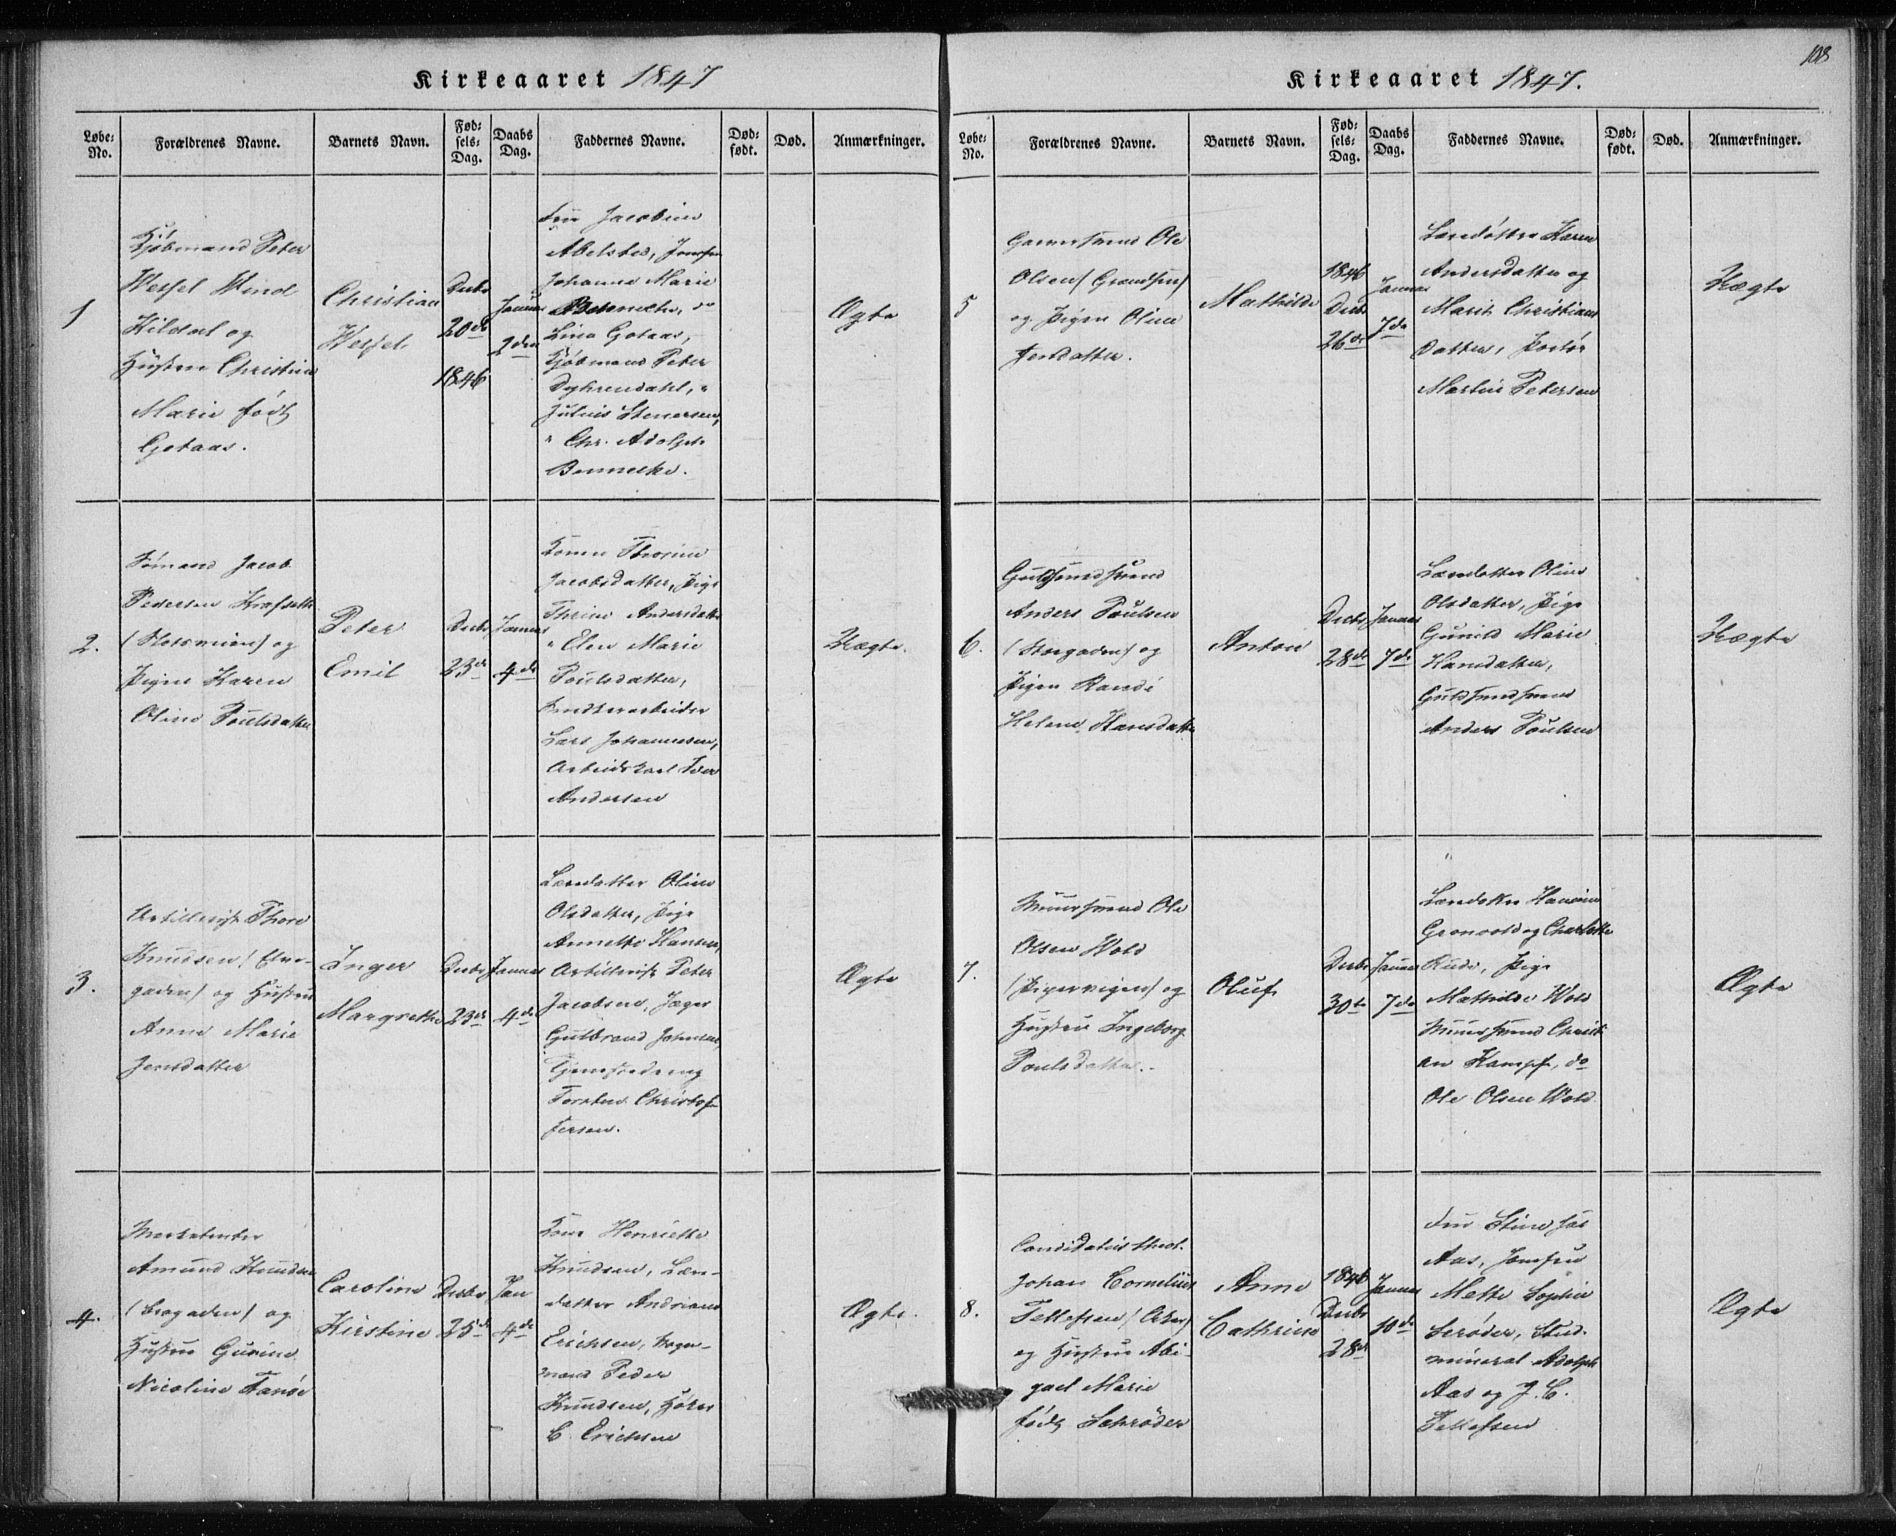 108
Kirkeaaret 1847
Løbe-No. Forældrenes Navne. Barnets Navn. Fødsels-Dag. Daabs Dag. Faddernes Navne. Dødfødt. Død. Anmærkninger.
1
Kjøbmand Peter
Wessel Wind
Kildal og
Hustru Christine
Marie født
Gotaas.
Christian
Wessel
Decbr
20de
1846
Januar
2den
Fru Jacobine
Abelsted, Jomfru
Johanne Marie
Bennecke, do
Lina Gotaas,
Kjøbmand Peter
Dyhrendahl, "
Julius Stenersen,
" Chr. Adolph
Bennecke.
Ægte
2.
Sømand Jacob
Pedersen Krafseth
(Plotomien) og
Pigen Karen
Oline Poulsdatter
Peter
Emil
Decbr
23de
Januar
4de
Konen Thorine
Jacobsdatter, Pige
Thrine Andersdatter
" Elen Marie
Poulsdatter,
Lars Johannesen,
Arbeidskarl Iver
Andersen
Uægte.
3.
Artillerist Thore
Knudsen (Elve-
gaden) og Hustru
Anne Marie
Jensdatter
Inger
Margrethe
Decbr
23de
Januar
4de
Læredatter Oline
Olsdatter, Pige
Annette Hansen,
Artillerist Peter
Jacobsen, Jæger
Gulbrand Johnsen,
Tjenestedreng
Torsten Christof-
fersen.
Ægte
4.
Marketenter
Amund Knudsen
(Brogaden) og
Hustru Gurine
Nicoline Fanøe
Caroline
Kirstine
Decbr
25de
Jan
4de
Kone Henriette
Knudsen, Lære-
datter Andriane
Erichsen, Vogn-
mand Peder
Knudsen, Høker
C. Erichsen
Ægte.
Kirkeaaret 1847.
Løbe-No. Forældrenes Navne. Barnets Navn. Fødsels-Dag. Daabs Dag. Faddernes Navne. Dødfødt. Død. Anmærkninger.
5
Garversvend Ole
Olsen (Grændsen)
og Pigen Oline
Jensdatter.
Mathilde
1846
Decbr
26de
Januar
7de
Læredøttre Karen
Andersdatter og
Marit Christians
datter, Portør
Martin Petersen
Uægte
6.
Guldsmedsvend
Anders Poulsen
(Storgaden) og
Pigen Randi
Helene Hansdatter
Anton
Decbr
28de
Januar
7de
Læredatter Oline
Olsdatter, Pige
Gunild Marie
Hansdatter,
Guldsmedsvend
Anders Poulsen
Uægte
7.
Muursvend Ole
Olsen Wold
(Pipervigen) og
Hustru Ingeborg
Poulsdatter.
Oluf
Decbr
30te
Januar
7de
Læredøttre Hanine
Gronvold og Charlotte
Rude, Pige
Mathilde Wold
Muursvend Christi-
an Kampf, do
Ole Olsen Wold
Ægte
8.
Candidatus theol.
Johan Cornelius
Tellefsen (Aker)
og Hustru Abi-
gael Marie
født Schrøder
Anne
Cathrine
1846
Decbr
28de
Januar
10de
Fru Stine
Aas, Jomfru
Mette Sophie
Scrøder, Stud.
mineral Adolph
Aas og J. C.
Tellefsen
Ægte